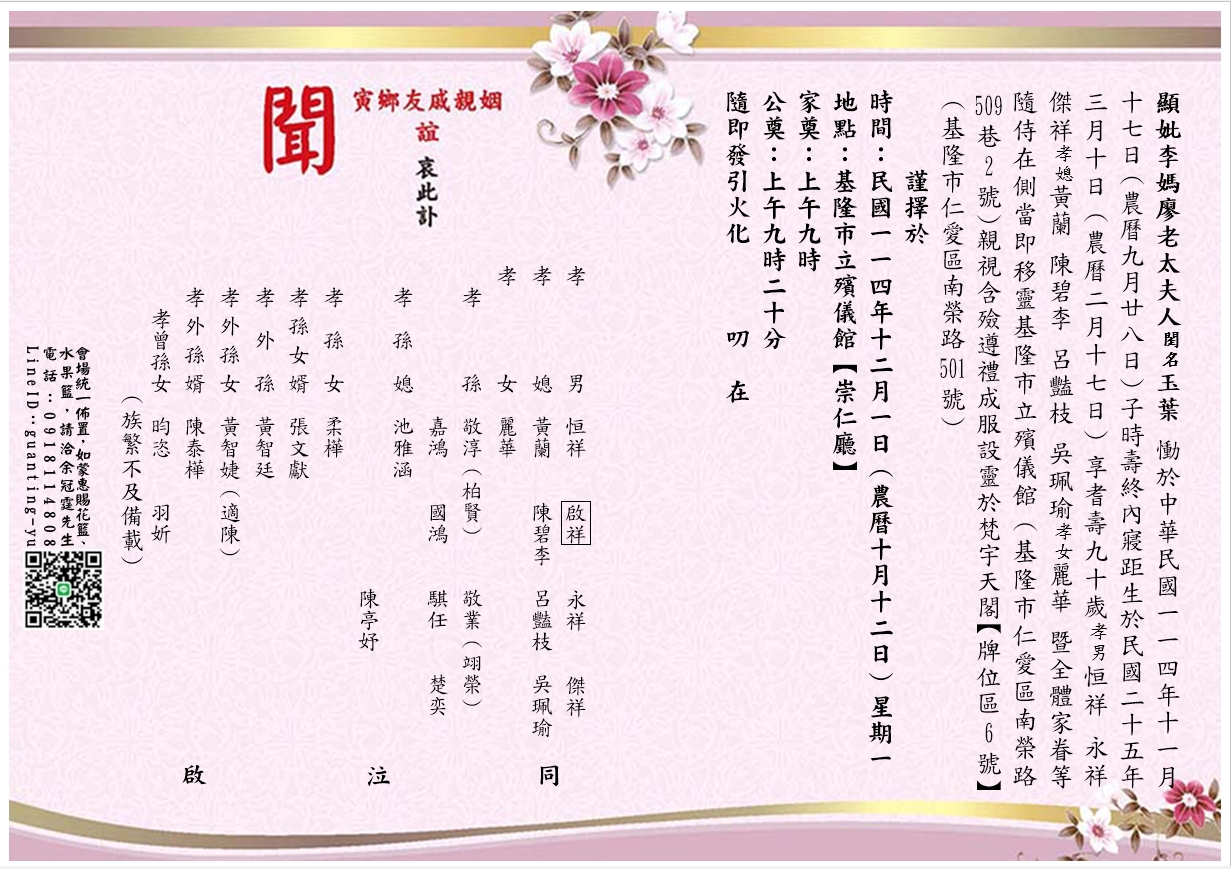 顯妣李媽廖老太夫人閨名玉葉 慟於中華民國一一四年十一月
十七日(農曆九月廿八日)子時壽終內寢距生於民國二十五年
三月十日(農曆二月十七日)享耆壽九十歲孝男恒祥 永祥
傑祥孝媳黃蘭 陳碧李 呂豔枝 吳珮瑜孝女麗華 暨全體家眷等
隨侍在側當即移靈基隆市立殯儀館(基隆市仁愛區南榮路
509巷2號)親視含殮遵禮成服設靈於梵宇天閣【牌位區6號】
(基隆市仁愛區南榮路501號)
謹擇於
時間:民國一一四年十二月一日(農曆十月十二日)星期一
地點:基隆市立殯儀館【崇仁廳】
家奠:上午九時
公奠:上午九時二十分
隨即發引火化 叨 在
寅鄉友戚親姻
誼
哀此訃
聞
孝 男 恒祥 啟祥 永祥 傑祥
孝 媳 黃蘭 陳碧李 呂豔枝 吳珮瑜
孝 女 麗華
孝 孫 敬淳(柏賢) 敬業(翊榮)
嘉鴻 國鴻 騏任 楚奕
孝 孫 媳 池雅涵
陳亭妤
孝 孫 女 柔樺
孝 孫 女 婿 張文獻
孝 外 孫 黃智廷
孝 外 孫 女 黃智婕(適陳)
孝 外 孫 婿 陳泰樺
孝曾孫女 昀恣 羽妡
(族繁不及備載)
同 泣 啟
會場統一佈置,如蒙惠賜花籃、
水果籃,請洽余冠霆先生
電話:0918114808
LineID:guanting-yu